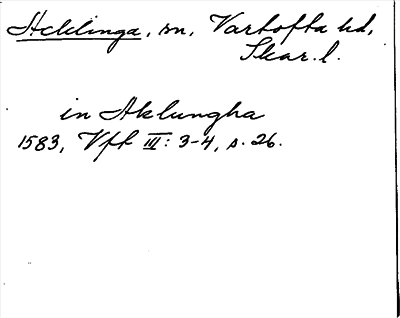 Acklinga, sn, Vartofta hd,
Skar. l.
in Aklungha
1583, Vfk III: 3-4, s. 26.